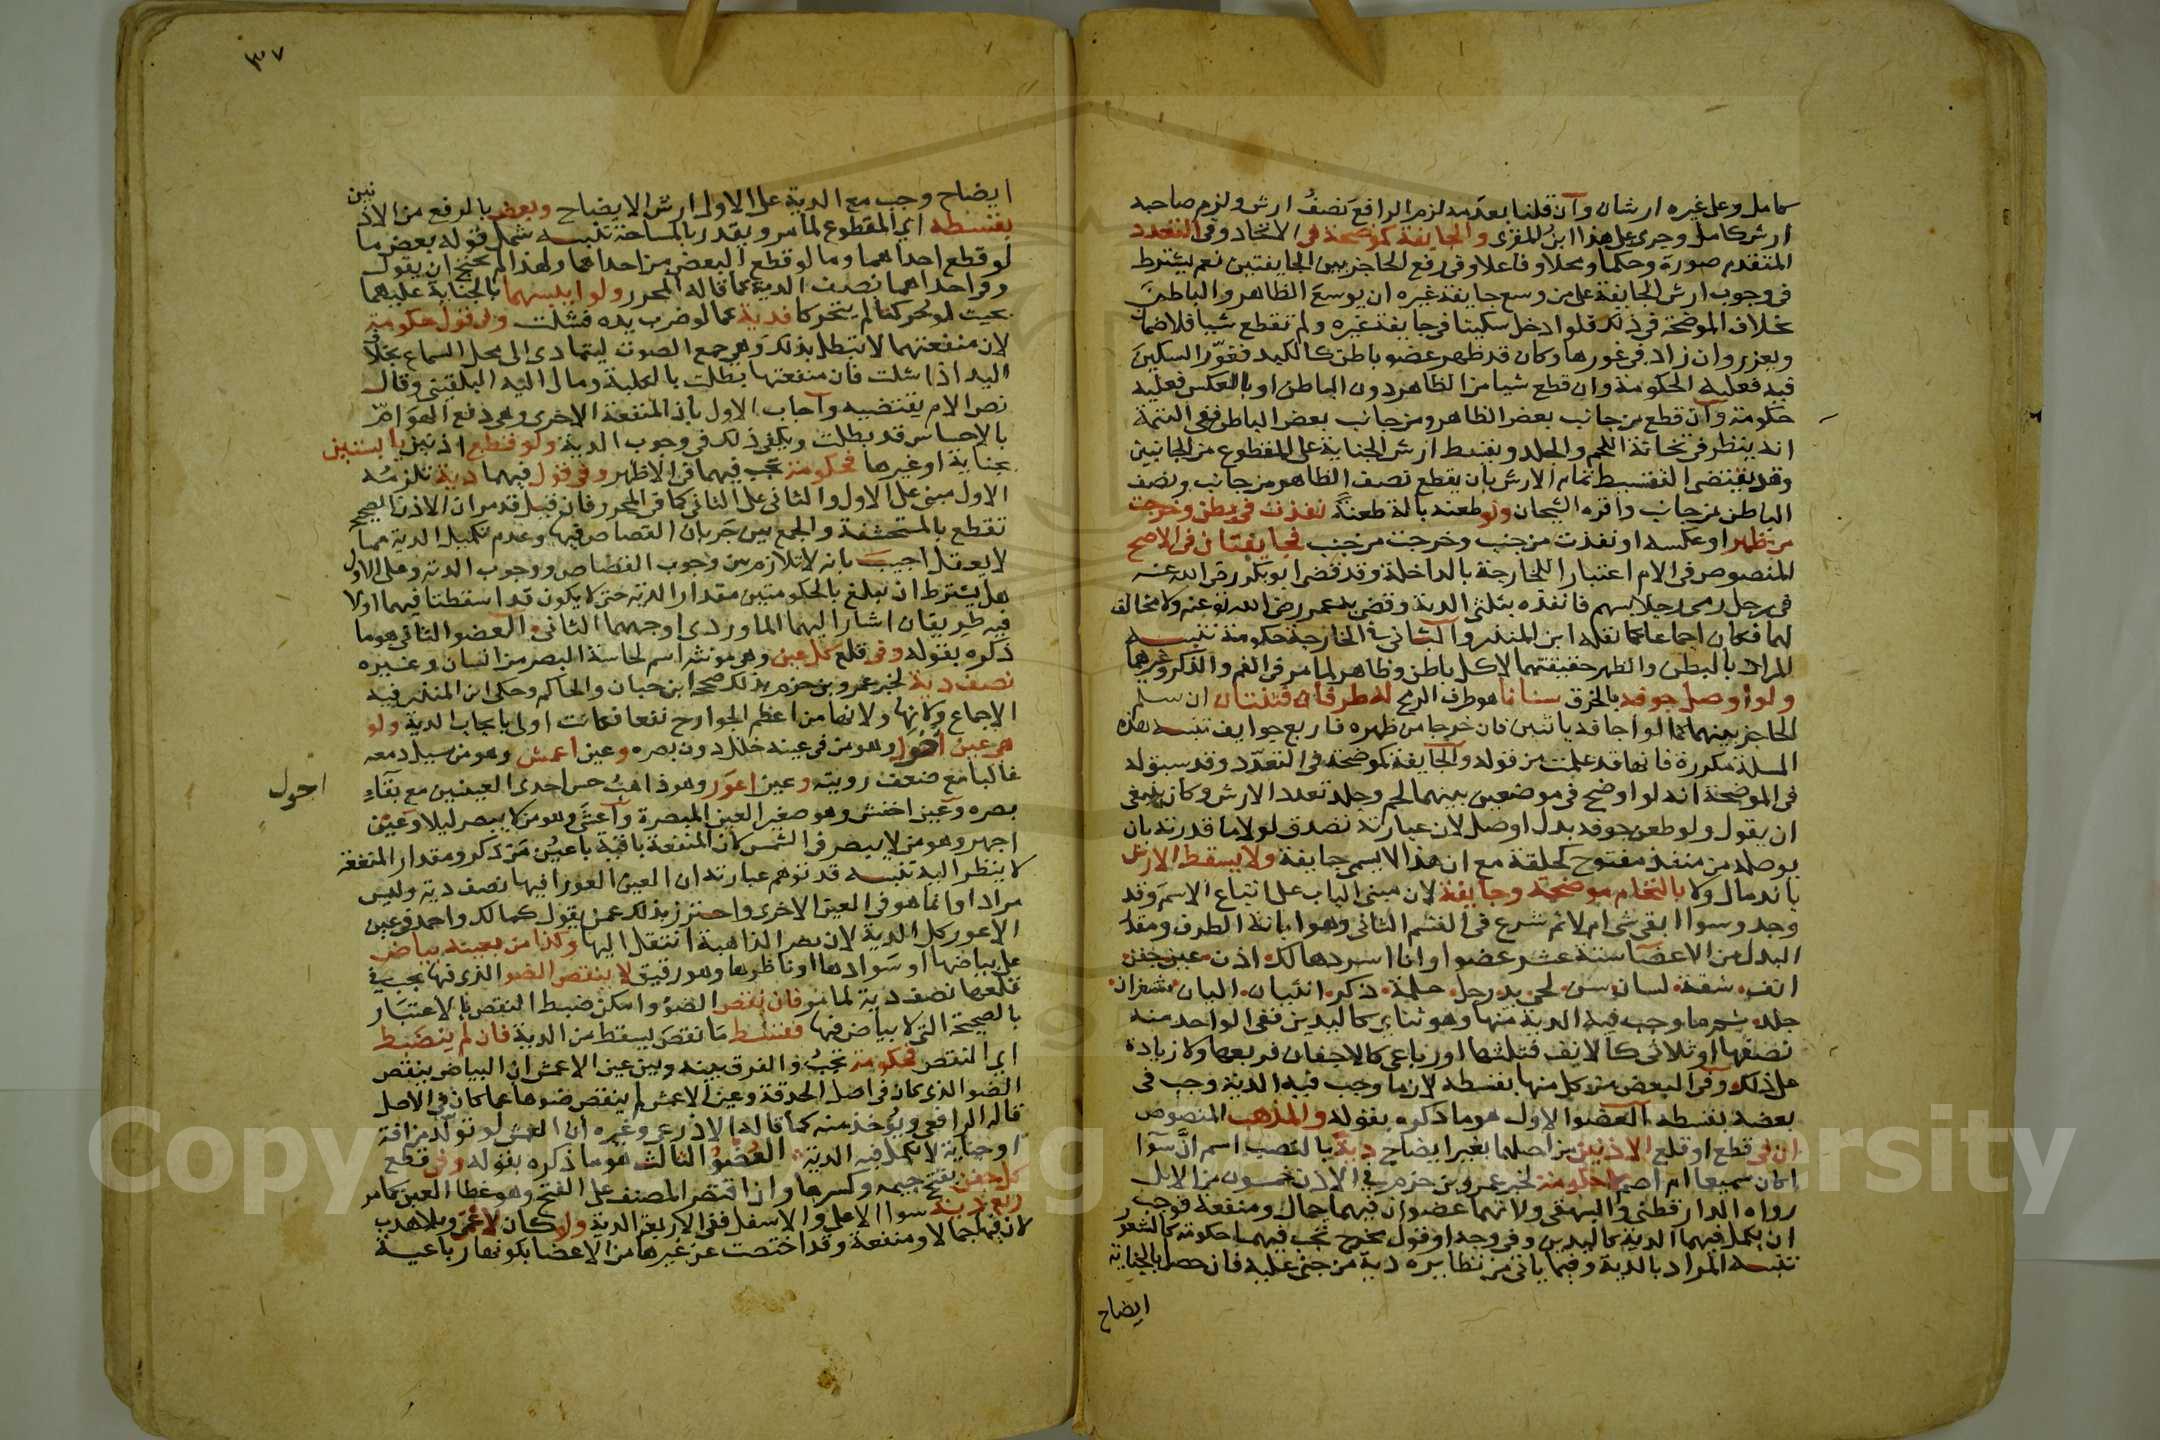 كامل وعلى غيره ارشان وان قلنا بعدمه لزم الرافع نصف ارش ولزم صاحبه
ارش كامل وجرى على هذا ابن المقرى والجايفة كموضحة في الاتحاد وفي التعدد
المتقدم صورة وحكما ومحلا وفاعلا وفي رفع الحاجز بين الجايفتين نعم يشترط
في وجوب ارش الجايفة على من وسع جايفة غيره ان يوسع الظاهر والباطن
بخلاف الموضحة في ذلك فلو ادخل سكينا في جايفة غيره ولم تقطع شيا فلا ضمان
ويعزر وان زاد في غورها وكان قد ظهر عضو باطن كالكبد فغوّر السكين
فيه فعليه الحكومة وان قطع شيا من الظاهر دون الباطن او بالعكس فعليه
حكومة وان قطع من جانب بعض الظاهر ومن جانب بعض الباطن ففي التتمة
انه ينظر في ثخانة اللحم والجلد ويقسط ارش الجناية على المقطوع من الجانبين
وقد يقتضي التقسيط تمام الارش بان يقطع نصف الظاهر من جانب ونصف
الباطن من جانب واقره الشيخان ولو طعنه بالة طعنة نفذت في بطن وخرجت
من ظهر او عكسه او نفذت من جنب وخرجت من جنب فجايفتان في الاصح
المنصوص في الام اعتبارا للخارجة بالداخلة وقد قضى ابو بكر رضي الله عنه
في رجل رمى رجلا بسهم فانفذه بثلثي الدية وقضى به عمر رضي الله تع عنه ولا مخالف
لهما فكان اجماعا كما نقله ابن المنذر والثاني في الخارجة حكومة تنبيه
المراد بالبطن والظهر حقيقتهما لا كل باطن وظاهر لما مر في الفم والذكر وغيرهما
ولو اوصل جوفه بالخرق سنانا هو طرف الرمح له طرفان فثنتان ان سلم
الحاجز بينهما كما لو اجافه باثنين فان خرجا من ظهره فاربع جوايف تنبيه هذه
المسلة مكررة فانها قد علمت من قوله والجايفة كموضحة في التعدّد وقد سبق له
في الموضحة انه لو اوضح في موضعين بينهما لحم وجلد تعدد الارش وكان ينبغي
ان يقول ولو طعن جوفه بدل اوصل لان عبارته تصدق لولا ما قدرته بان
يوصله من منفذ مفتوح كحلقة مع ان هذا لا يسمى جايفة ولا يسقط الارش
باندمال ولا بالتحام موضحة وجايفة لان مبنى الباب على اتباع الاسم وقد
وجد وسوا ابقى شي ام لا ثم شرع في القسم الثاني وهو ابانة الطرف ومقدر
البدل من الاعضا ستة عشر عضوا وانا اسردها لك اذن عين جفن
انف شفة لسان سن لحي يد رجل حلمة ذكر انثيان اليان شفران
جلد ثم ما وجب فيه الدية منها وهو ثنايي كاليدين ففي الواحد منه
نصفها او ثلاثي كالانف فثلثها او رباعي كالاجفان فربعها ولا زيادة
على ذلك وفي البعض من كل منها بقسطه لان ما وجب فيه الدية وجب في
بعضه بقسطه العضو الاول هو ما ذكره بقوله والمذهب المنصوص
ان في قطع او قلع الاذنين من اصلهما بغير ايضاح دية بالنصب اسم ان سوا
اكان سميعا ام اصم لا حكومة لخبر عمرو بن حزم في الاذن خمسون من الابل
رواه الدارقطني والبيهقي ولانهما عضوان فيهما جمال ومنفعة فوجب
ان يكمل فيهما الدية كاليدين وفي وجه او قول مخرج تجب فيهما حكومة كالشعور
تنبيه المراد بالدية وفيما ياتي من نظايره دية من جني عليه فان حصل بالجناية
ايضاح
٣٧
ايضاح وجب مع الدية على الاول ارش الايضاح وبعض بالرفع من الاذنين
بقسطه اي المقطوع لما مر ويقدر بالمساحة تنبيه شمل قوله بعض ما
لو قطع احداهما وما لو قطع البعض من احداهما ولهذا لم يحتج ان يقول
وفي احداهما نصف الدية كما قاله المحرر ولو ايبسهما بالجناية عليهما
بحيث لو حركتا لم يتحركا فدية كما لو ضرب يده فشلت وفي قول حكومة
لان منفعتهما لا تبطل بذلك وهي جمع الصوت ليتمادى الى محل السماع بخلاف
اليد اذا شلت فان منفعتها بطلت بالكلية ومال اليه البلقيني وقال
نص الام يقتضيه واجاب الاول بان المنفعة الاخرى وهي دفع الهوام
بالاحساس قد بطلت ويكفي ذلك في وجوب الدية ولو قطع اذنين يابستين
بجناية او غيرها فحكومة تجب فيهما في الاظهر وفي قول فيهما دية تلزمه
الاول مبني على الاول والثاني على الثاني كما في المحرر فان قيل قد مر ان الاذن الصحيح
تقطع بالمستحشفة والجمع بين جريان القصاص فيها وعدم تكميل الدية مما
لا يعقل اجيب بانه لا تلازم بين وجوب القصاص ووجوب الدية وعلى الاول
هل يشترط ان تبلغ بالحكومتين مقدار الدية حتى لا يكون قد اسقطنا فيهما اولا
فيه طريقان اشار اليهما الماوردي اوجههما الثاني العضو الثاني هو ما
ذكره بقوله وفي قلع كل عين وهي مونث اسم لحاسة البصر من انسان وغيره
نصف دية لخبر عمرو بن حزم بذلك صححه ابن حبان والحاكم وحكى ابن المنذر فيه
الاجماع ولانها من اعظم الجوارح نفعا فكانت اولى بايجاب الدية ولو
هي عين احول وهو من في عينه خلل دون بصره وعين اعمش وهو من يسيل دمعه
احول
غالبا مع ضعف رويته وعين اعور وهو ذاهب حس احدى العينين مع بقاء
بصره وعين اخفش وهو صغير العين المبصرة واعشى وهو من لا يبصر ليلا وعين
اجهر وهو من لا يبصر في الشمس لان المنفعة باقية باعين من ذكر ومقدار المنفعة
لا ينظر اليه تنبيه قد توهم عبارته ان العين العورا فيها نصف دية وليس
مرادا وانما هو في العين الاخرى واحترز بذلك عمن يقول كمالك واحمد في عين
الاعور كل الدية لان بصر الذاهبة انتقل اليها وكذا من بعينه بياض
على بياضها او سوادها او ناظرها وهو رقيق لا ينقص الضو الذي فيها يجب في
قلعها نصف دية لما مر فان نقص الضوء وامكن ضبط النقص بالاعتبار
بالصحيحة التي لا بياض فيها فقسط ما نقص يسقط من الدية فان لم ينضبط
اي النقص فحكومة تجب والفرق بينه وبين عين الاعمش ان البياض ينقص
الضو الذي كان في اصل الحدقة وعين الاعمش لم ينقص ضوها عما كان في الاصل
قاله الرافعي ويؤخذ منه كما قاله الاذرعي وغيره ان العمش لو تولد من افة
او جناية لا تكمل فيه الدية العضو الثالث هو ما ذكره بقوله وفي قطع
كل جفن بفتح جيمه وكسرها وان اقتصر المصنف على الفتح وهو غطا العين كما مر
ربع دية سوا الاعلى والاسفل ففي الاربعة الدية ولو كان لاعمى وبلا هدب
لان فيها جمالا ومنفعة وقد اختصت عن غيرها من الاعضا بكونها رباعية